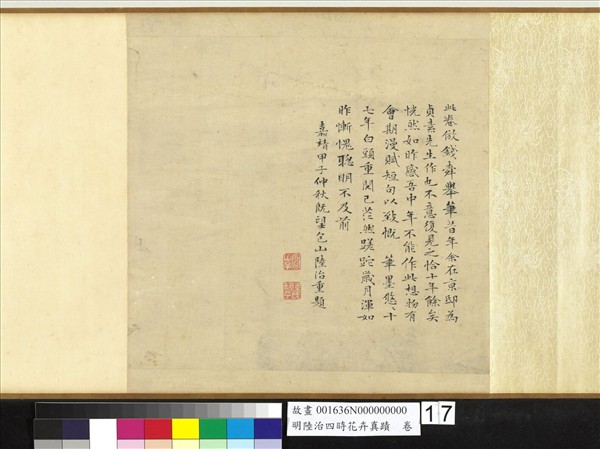 此卷倣錢舜舉筆昔年余在京邸為
貞素先生作也不意復見之恰十年餘矣
恍然如昨感吾中年不能作此想物有
會期漫賦短句以致慨 筆墨悠悠十
七年白頭重閱已茫然蹉跎歲月渾如
昨慚愧聰明不及前
嘉靖甲子仲秋既望包山陸治重題
故畫 001636N000000000
明陸治四時花卉真蹟 卷
17